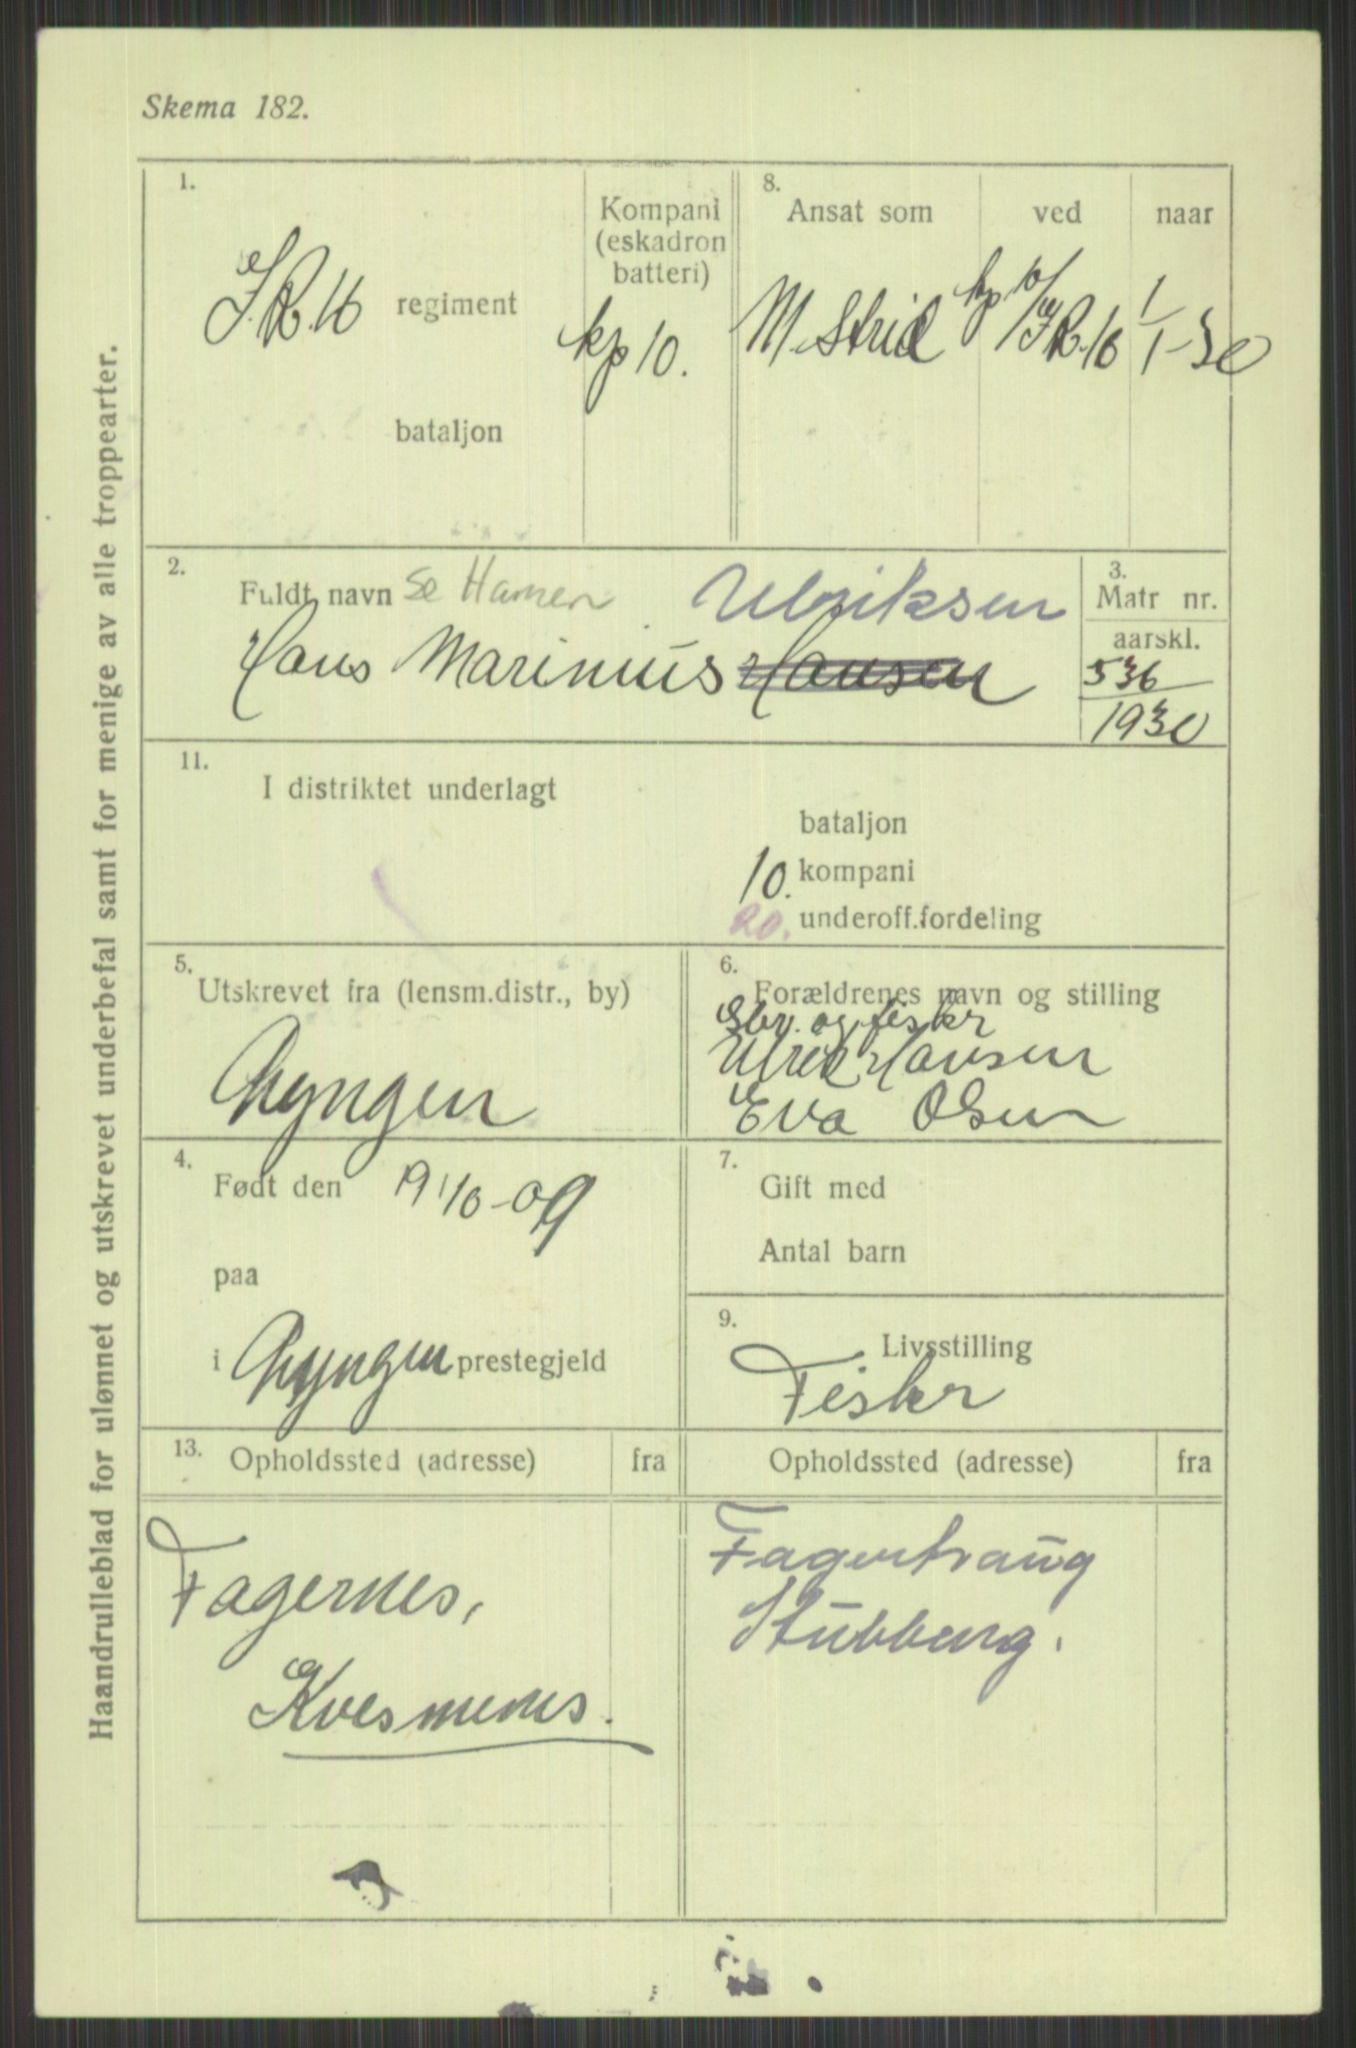 Skema 182.
Haandrulleblad for ulønnet og utskrevet underbefal samt for menige av alle troppearter.
1.
I.R.16 regiment
bataljon
Kompani
(eskadron
batteri)
kp 10.
8.
Ansat som
ved
naar
M. Strid
kp 10/I.R.16
1/1-30
2.
Fuldt navn Se Hansen Ulriksen
Hans Marinius Hansen
3.
Matr nr.
aarskl.
536
1930
11.
I distriktet underlagt
bataljon
10. kompani
20. underoff.fordeling
5.
Utskrevet fra (lensm.distr., by)
Lyngen
6.
Forældrenes navn og stilling
Gbr. og fisker
Ulrik Hansen
Eva Olsen
4.
Født den 19/10-09
paa
i Lyngen prestegjeld
7.
Gift med
Antal barn
9.
Livsstilling
Fisker
13. Opholdssted (adresse)
fra
Opholdssted (adresse)
fra
Fagernes,
Kvesmenes.
Stubbeng.